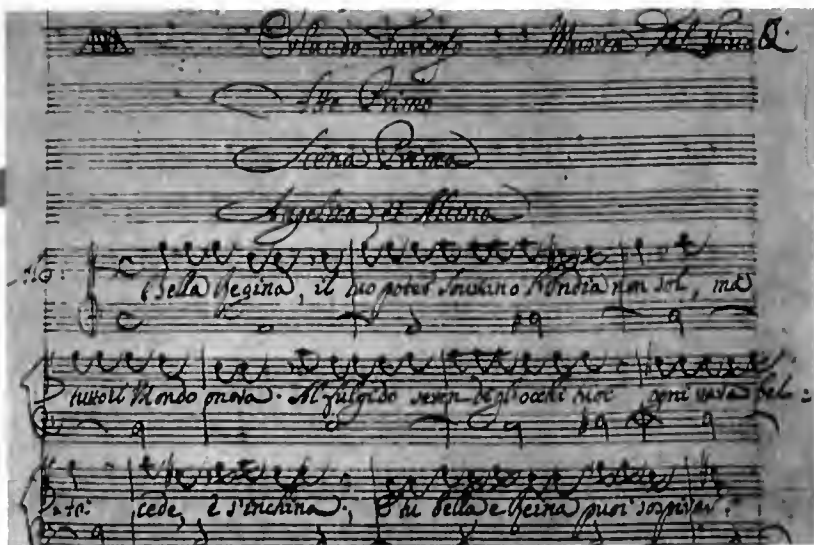 Orlando Furioso Musica Del Viva
Atto Primo
Scena Prima
Angelica et Alcina
Bella Regina, il tuo poter sourano non sol, mà
tutto il Mondo onora. Al fulgido seren degl'occhi tuoi ogni vaga bel=
=tà cede, e s'inchina, E tu bella e Regina puoi sospirar.